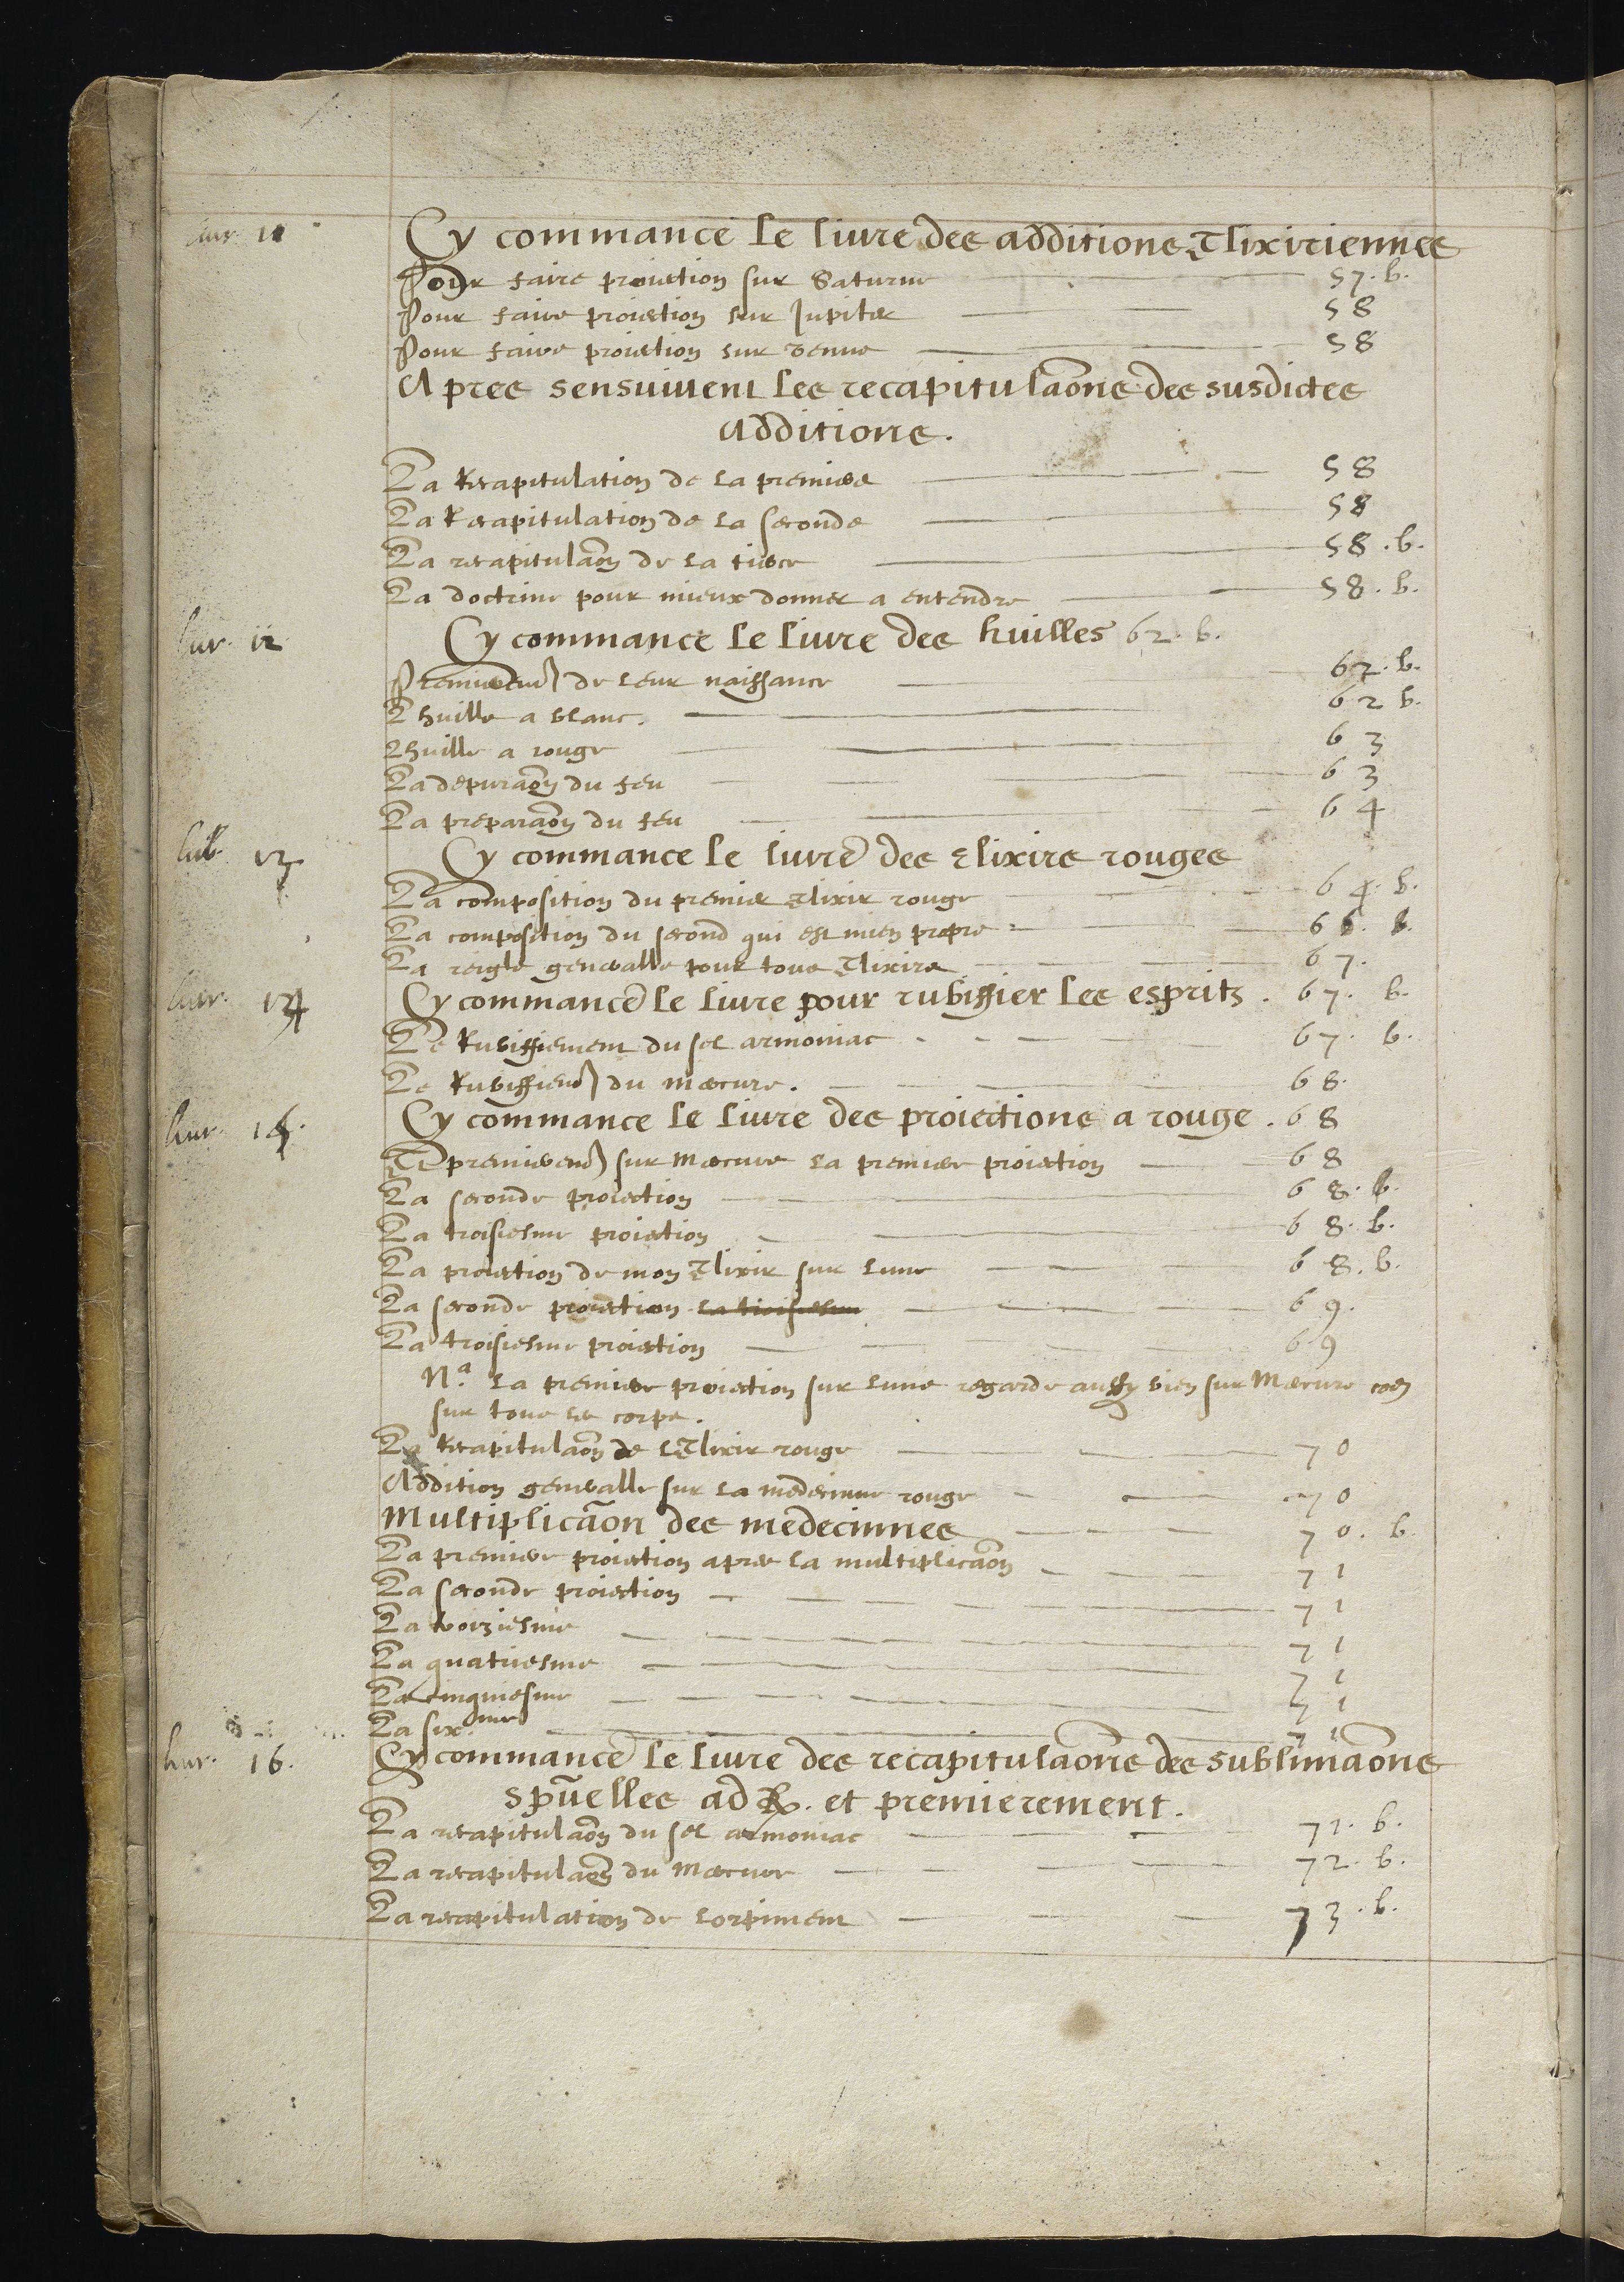 liur. 11 Cy commance le liure des additions Elixiriennes
Pour faire proiection sur Saturne 57. b.
Pour faire proiection sur Jupiter 58
Pour faire proiection sur venus 58
Apres sensuiuent les recapitulaõns des susdictes
additions.
La Recapitulation de la premiere 58
La Recapitulation de la seconde 58
La recapitulaõn de la tierce 58. b.
La doctrine pour mieux donner a entendre 58. b.
liur. 12 Cy commance le liure des huilles 62. b.
Premieremt de leur naissance 62. b.
Lhuille a blanc. 62 b.
Lhuille a rouge 63
La depuraõn du feu 63
La preparaõn du feu 64
lib. 13 Cy commance le liure des Elixirs rouges
La composition du premier Elixir rouge 64. b.
La composition du second qui est mien propre 66. b.
La reigle generalle pour tous Elixirs 67.
liur. 14 Cy commance le liure pour rubiffier les esprits. 67. b.
Le Rubiffiement du sel armoniac 67. b.
Le Rubiffiemt du mercure. 68.
liur. 15. Cy commance le liure des proiections a rouge. 68
Et premieremt sur mercure la premiere proiection 68
La seconde proiection 68. b.
La troisiesme proiection 68. b.
La proiection de mon Elixir sur lune 68. b.
La seconde proiection la troisiesme 69.
La troisiesme proiection 69
Nª. La premiere proiection sur lune regarde aussy bien sur Mercure coẽ
sur tous les corps.
La Recapitulaõn de lElixir rouge 70
Addition generalle sur la medecinne rouge 70
Multiplicãon des medecinnes 70. b.
La premiere proiection apres la multiplicaõn 71
La seconde proiection 71
La troiziesme 71
La quatriesme 71
La cinquiesme 71
La sixme 71
liur. 16. Cy commance le liure des recapitulaõns des sublimaõns
spũelles ad R. et premierement.
La recapitulaõn du sel armoniac 71. b.
La recapitulaõn du Mercure 72. b.
La recapitulation de lorpiment 73. b.